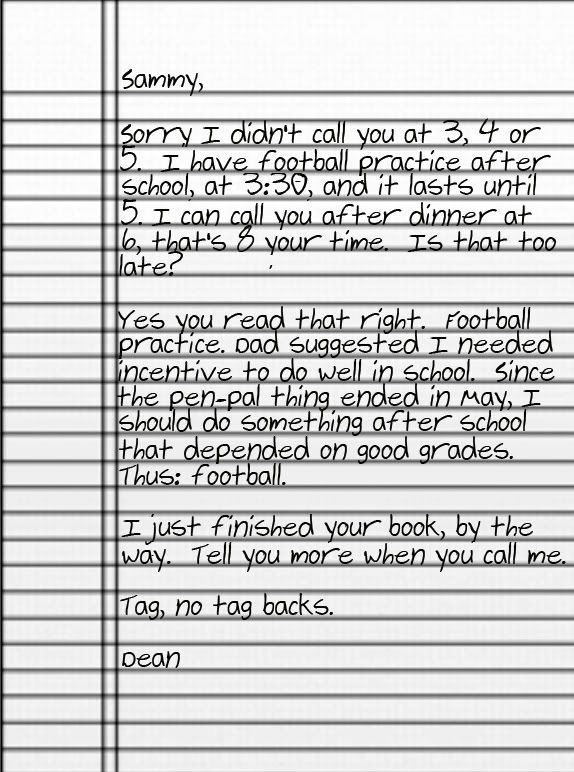 Sammy,
Sorry I didn't call you at 3, 4 or
5. I have football practice after
school, at 3:30, and it lasts until
5. I can call you after dinner at
6, that's 8 your time. Is that too
late?
Yes you read that right. Football
practice. Dad suggested I needed
incentive to do well in school. Since
the pen-pal thing ended in May, I
should do something after school
that depended on good grades.
Thus: football.
I just finished your book, by the
way. Tell you more when you call me.
Tag, no tag backs.
Dean